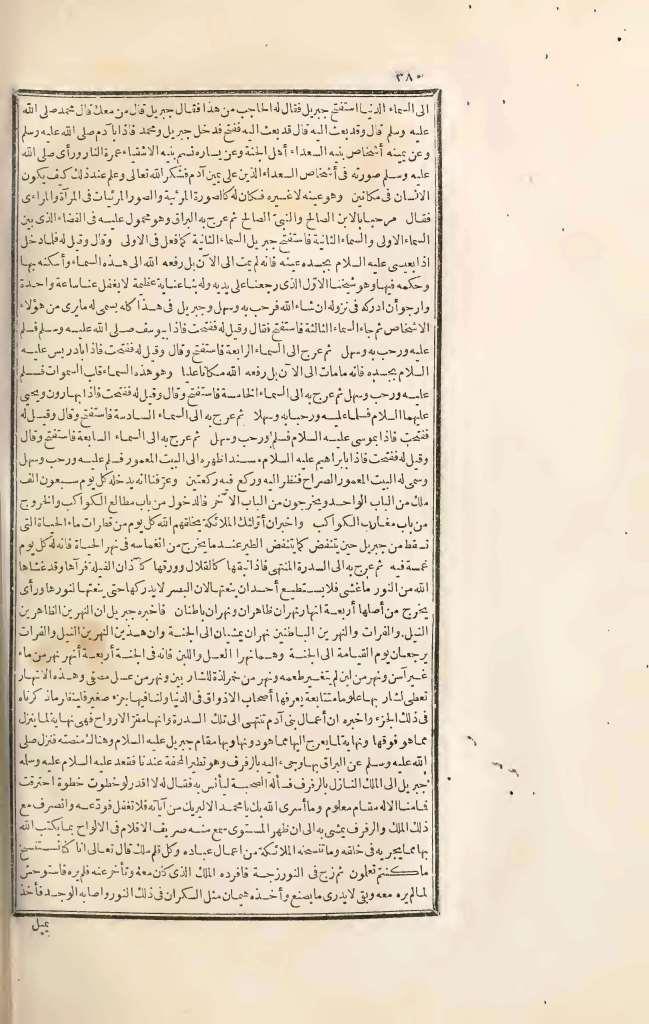 ٣٨٠
الى السماء الدنيا استفتح جبريل فقال له الحاجب من هذا فقال جبريل قال من معك قال محمد صلى الله
عليه وسلم قال وقد بعث اليه قال قد بعث اليه ففتح فدخل جبريل ومحمد فاذا بآدم صلى الله عليه وسلم
وعن يمينه أشخاص بنيه السعداء أهل الجنة وعن يساره نسم بنيه الاشقياء عمرة النار ورأى صلى الله
عليه وسلم صورته فى أشخاص السعداء الذين على يمين آدم فشكر الله تعالى وعلم عند ذلك كيف يكون
الانسان فى مكانين وهو عينه لا غيره فكان له كالصورة المرئية والصور المرئيات فى المرآة والمراءى
فقال مرحبا بالابن الصالح والنبىّ الصالح ثم عرج به البراق وهو محمول عليه فى الفضاء الذى بين
السماء الاولى والسماء الثانية فاستفتح جبريل السماء الثانية كما فعل فى الاولى وقال وقيل له فلما دخل
اذا بعيسى عليه السلام بجسده عينه فانه لم يمت الى الآن بل رفعه الله الى هذه السماء وأسكنه بها
وحكمه فيها وهو شيخنا الاوّل الذى رجعنا على يديه وله بنا عناية عظيمة لا يغفل عنا ساعة واحدة
وارجو أن ادركه فى نزوله ان شاء الله فرحب به وسهل وجبريل فى هذا كله يسمى له ما يرى من هؤلاء
الاشخاص ثم جاء السماء الثالثة فاستفتح فقال وقيل له ففتحت فاذا بيوسف صلى الله عليه وسلم فسلم
عليه ورحب به وسهل ثم عرج الى السماء الرابعة فاستفتح وقال وقيل له ففتحت فاذا بادريس عليه
السلام بجسده فانه ما مات الى الآن بل رفعه الله مكانا عليا وهو هذه السماء قلب السموات فسلم
عليه ورحب وسهل ثم عرج به الى السماء الخامسة فاستفتح وقال وقيل له ففتحت فاذا بهارون ويحيى
عليهما السلام فسلما عليه ورحبا به وسهلا ثم عرج به الى السماء السادسة فاستفتح وقال وقيل له
ففتحت فاذا بموسى عليه السلام فسلم ورحب وسهل ثم عرج به الى السماء السابعة فاستفتح وقال
وقيل له ففتحت فاذا بابراهيم عليه السلام مسندا ظهره الى البيت المعمور فسلم عليه ورحب وسهل
وسمى له البيت المعمور الصراح فنظر اليه وركع فيه ركعتين وعرّفنا انه يدخله كل يوم سبعون الف
ملك من الباب الواحد ويخرجون من الباب الآخر فالدخول من باب مطالع الكواكب والخروج
من باب مغارب الكواكب واخبر ان أولئك الملائكة يخلقهم الله كل يوم من قطرات ماء الحياة التى
تسقط من جبريل حين ينتفض كما ينتفض الطير عند ما يخرج من انغماسه فى نهر الحياة فانه له كل يوم
غمسة فيه ثم عرج به الى السدرة المنتهى فاذا نبقها كالقلال وورقها كآذان الفيلة فرآها وقد غشاها
الله من النور ما غشى فلا يستطيع أحد ان ينعتها لان البصر لا يدركها حتى ينعتها لنورها ورأى
يخرج من أصلها أربعة انهار نهران ظاهران ونهران باطنان فاخبره جبريل ان النهرين الظاهرين
النيل والفرات والنهرين الباطنين نهران يمشيان الى الجنة وان هذين النهرين النيل والفرات
يرجعان يوم القيامة الى الجنة وهما نهرا العسل واللبن فانه فى الجنة أربعة أنهر نهر من ماء
غير آسن ونهر من لبن لم يتغير طعمه ونهر من خمر لذة للشاربين ونهر من عسل مصفى وهذه الانهار
تعطى لشاربها علوما متتابعة يعرفها أصحاب الاذواق فى الدنيا ولنا فيها جزء صغير فلينظر ما ذكرناه
فى ذلك الجزء واخبره ان أعمال بنى آدم تنتهى الى تلك السدرة وانها مقرّ الارواح فهى نهاية لما ينزل
مما هو فوقها ونهاية لما يعرج اليها مما هو دونها وبها مقام جبريل عليه السلام وهناك منصته فنزل صلى
الله عليه وسلم عن البراق بها وجىء اليه بالرفرف وهو نظير المحفة عندنا فقعد عليه السلام عليه وسلمه
جبريل الى الملك النازل بالرفرف فسأله الصحبة ليأنس به فقال له لا اقدر لو خطوت خطوة احترقت
فما منا الا له مقام معلوم وما أسرى الله بك يا محمد الا ليريك من آياته فلا تغفل فودّعه وانصرف مع
ذلك الملك والرفرف يمشى به الى ان ظهر المستوى سمع منه صريف الاقلام فى الالواح بما يكتب الله
بها مما يجريه فى خلقه وما تنسخه الملائكة من اعمال عباده وكل قلم ملك قال تعالى انا كنا نستنسخ
ما كنتم تعلمون ثم زج فى النور زجة فافرده الملك الذى كان معه وتأخر عنه فلم يره فاستوحش
لما لم يره معه وبقى لا يدرى ما يصنع وأخذه هيمان مثل السكران فى ذلك النور واصابه الوجد فأخذ
يميل